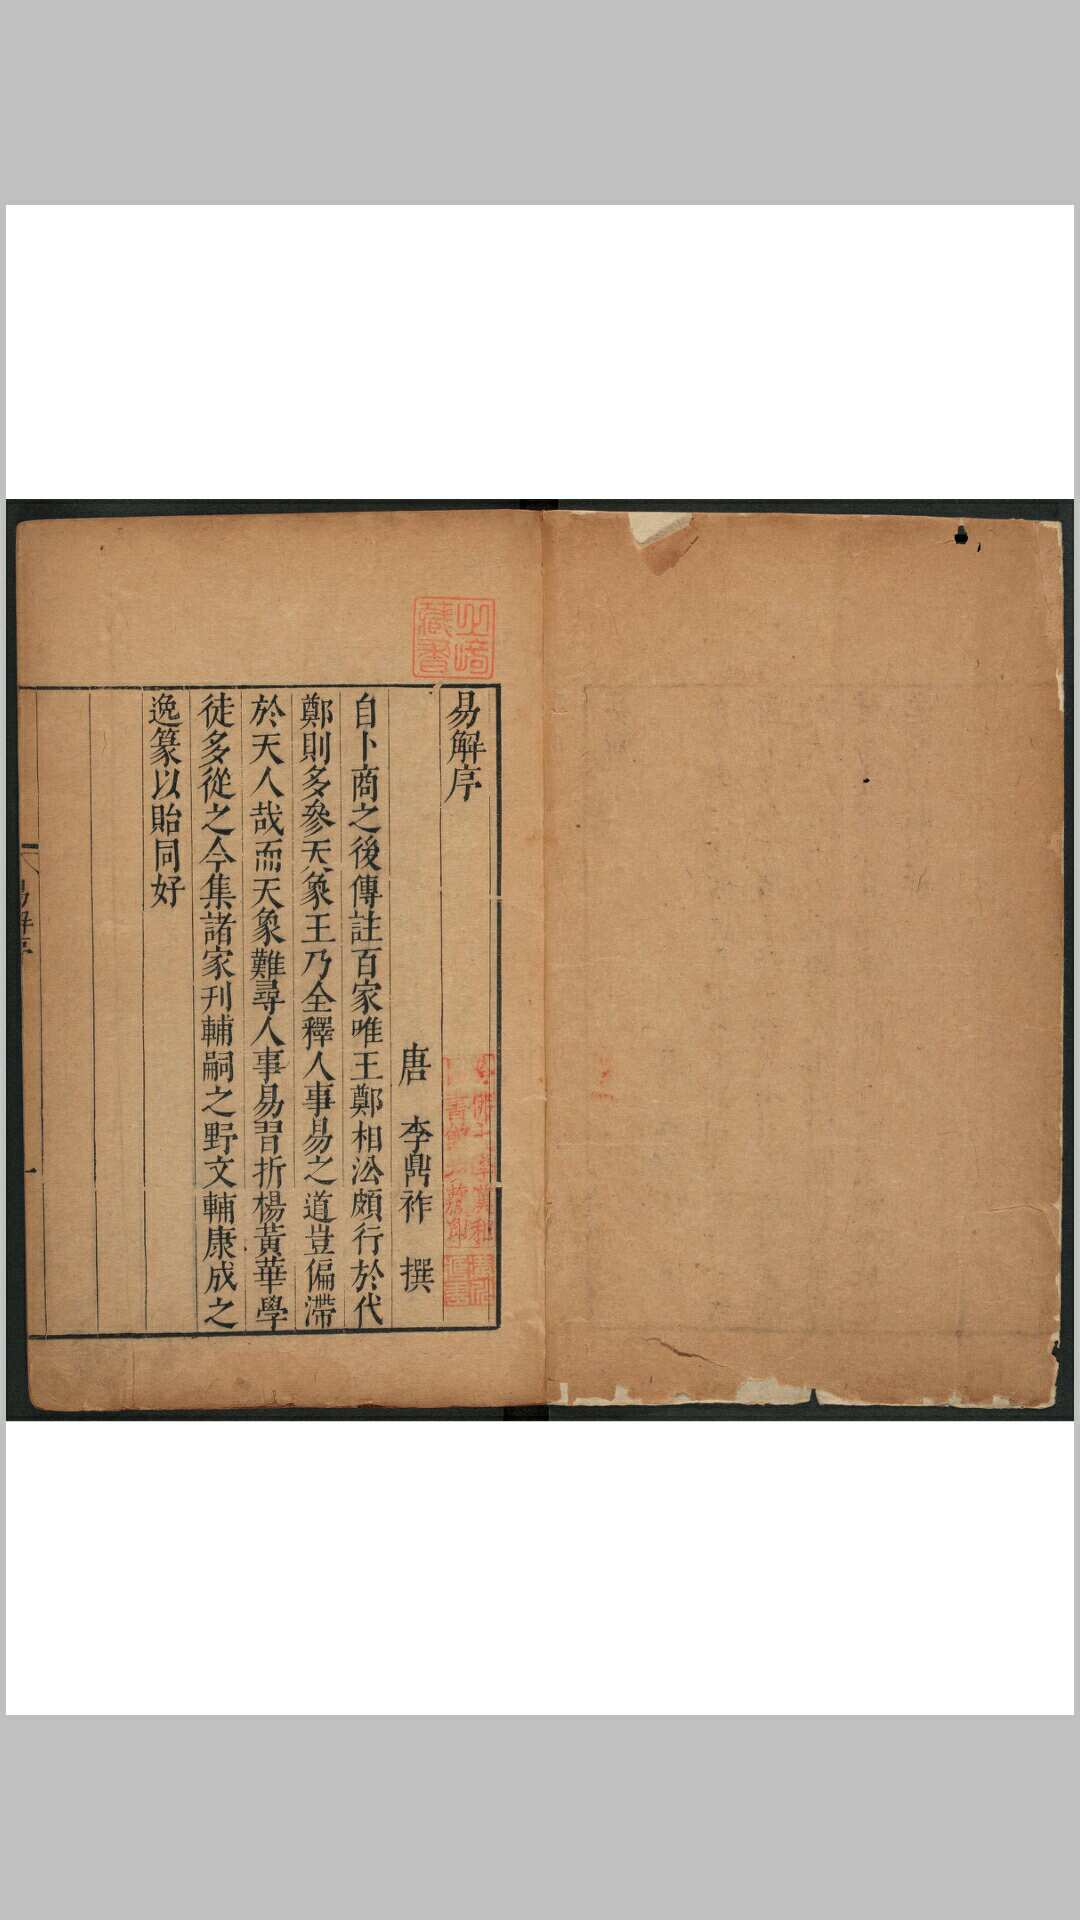 易解序
唐　李鼎祚　撰
自卜商之後傳註百家唯王鄭相㳂頗行於代
鄭則多參天象王乃全釋人事易之道豈偏滯
於天人哉而天象難尋人事易習折楊黃華學
徒多從之今集諸家刋輔嗣之野文輔康成之
逸篆以貽同好
藏書
易解序
一